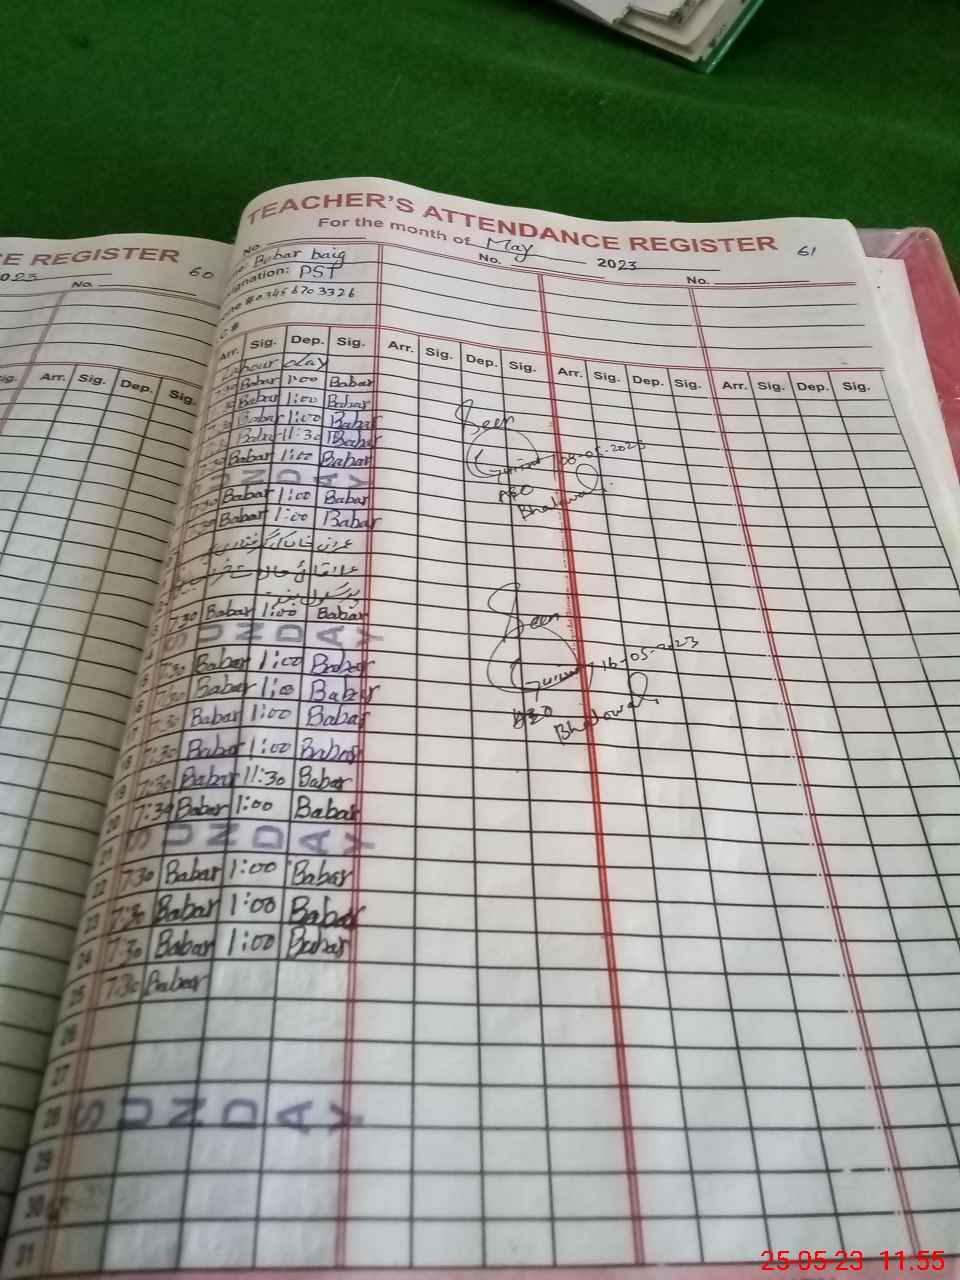 CE REGISTER 60
2023
No.
Sig. Arr. Sig. Dep. Sig.
TEACHER'S ATTENDANCE REGISTER 61
For the month of May 2023
No. No. No.
Babar baig
PST
0345 670 3326
Arr. Sig. Dep. Sig. Arr. Sig. Dep. Sig. Arr. Sig. Dep. Sig. Arr. Sig. Dep. Sig.
Labour day
Babar 1:00 Babar
Babar 1:00 Babar
Babar 1:00 Babar
Babar 11:30 Babar
7:30 Babar 1:00 Babar
SUNDAY
7:30 Babar 1:00 Babar
7:30 Babar 1:00 Babar
Seen
08-05-2023
AEO
Bhalowal
7:30 Babar 1:00 Babar
SUNDAY
7:30 Babar 1:00 Babar
7:30 Babar 1:00 Babar
7:30 Babar 1:00 Babar
18 7:30 Babar 1:00 Babar
19 7:30 Babar 11:30 Babar
20 7:30 Babar 1:00 Babar
21 SUNDAY
22 7:30 Babar 1:00 Babar
23 7:30 Babar 1:00 Babar
24 7:30 Babar 1:00 Babar
25 7:30 Babar
26
27
28 SUNDAY
29
30
31
Seen
16-05-2023
AEO
Bhalowal
25-05-23 11:55